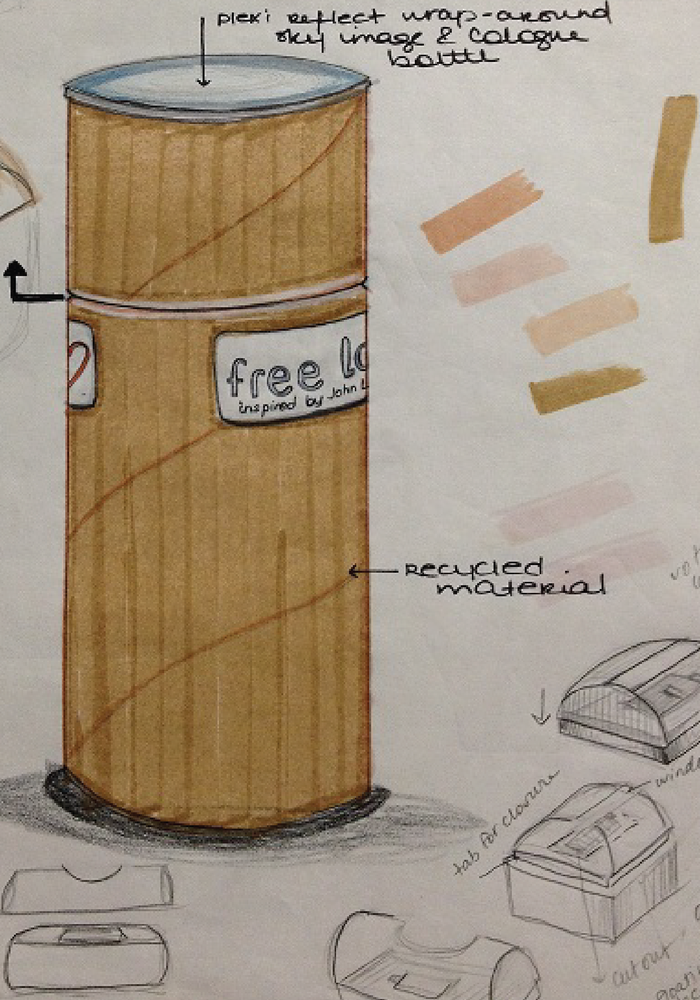 plexi reflect wrap-around
sky image & cologne
bottle
free lo
inspired by John L
recycled
material
windo
tab for closure
cut out
floatin